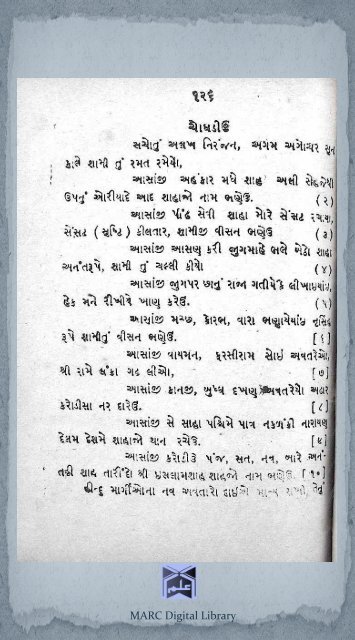 ૧૨૬
ચોઘડીઉ
સચોતું અલખ નિરંજન, અગમ અગોચર સુન
કાજે શામી તું રમત રમેયો,
આસાંજી અહંકાર મધે શાહા અલી
ઉપનું ઓરીયાદે આદ શાહાજો નામ ભણેઉ. (૨)
આસાંજી પીંઢ સેત્રી શાહા મોરે સંસટ રચાયા,
સંસટ (સૃષ્ટિ) કીલતાર, શામીજી વીસન ભણેઉ (૩)
આસાંજી આસણ કરી જુગમાહે ભલે બેઠો શાહા
અનંતરૂપે, શામી તું ચલ્લી કીયો (૪)
આસાંજી જુગપર
હેક મને રીખીસે ખાણુ કરેઉ. (૫)
આસાંજી મચ્છ, કોરભ, વારા
રૂપે શામીતું વીસન ભણેઉ. [૬]
આસાંજી વાયમન, ફરસીરામ સોઇ અવતરેઓ,
શ્રી રામે લંકા ગઢ લીઓ, [૭]
આસાંજી કાનજી, બુધ્ધ દખણુ અવતરેયો અઢાર
કરોડીસા નર દારેઉ. [૮]
આસાંજી સે સાહા પશ્ચિમે પાત્ર નકળંકી નારાયણ
દેલમ દેશમે શાહાજો થાન રચેઉ. [૯]
આસાંજી કરોડીકે પંજ, સત, નવ, બારે અનં-
તકી શાહ તારીંદો શ્રી ઇસલામશાહ શાહજો નામ ભણેઉ. [૧૦]
હીન્દુ માર્ગીઓના નવ અવતારો તેનું
MARC Digital Library